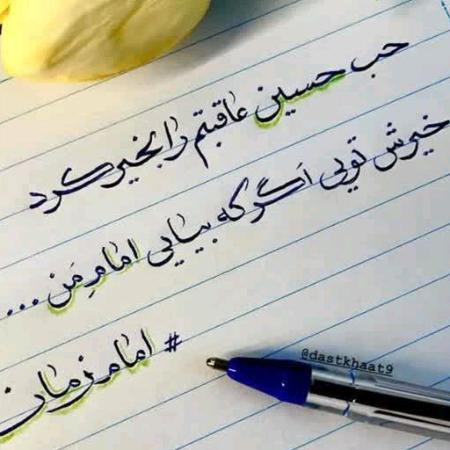 حب حسین عاقبتم را بخیر کرد
خیرش تویی اگر که بیایی امامِ مَن ...
# امام زمان
@dastkhaat9